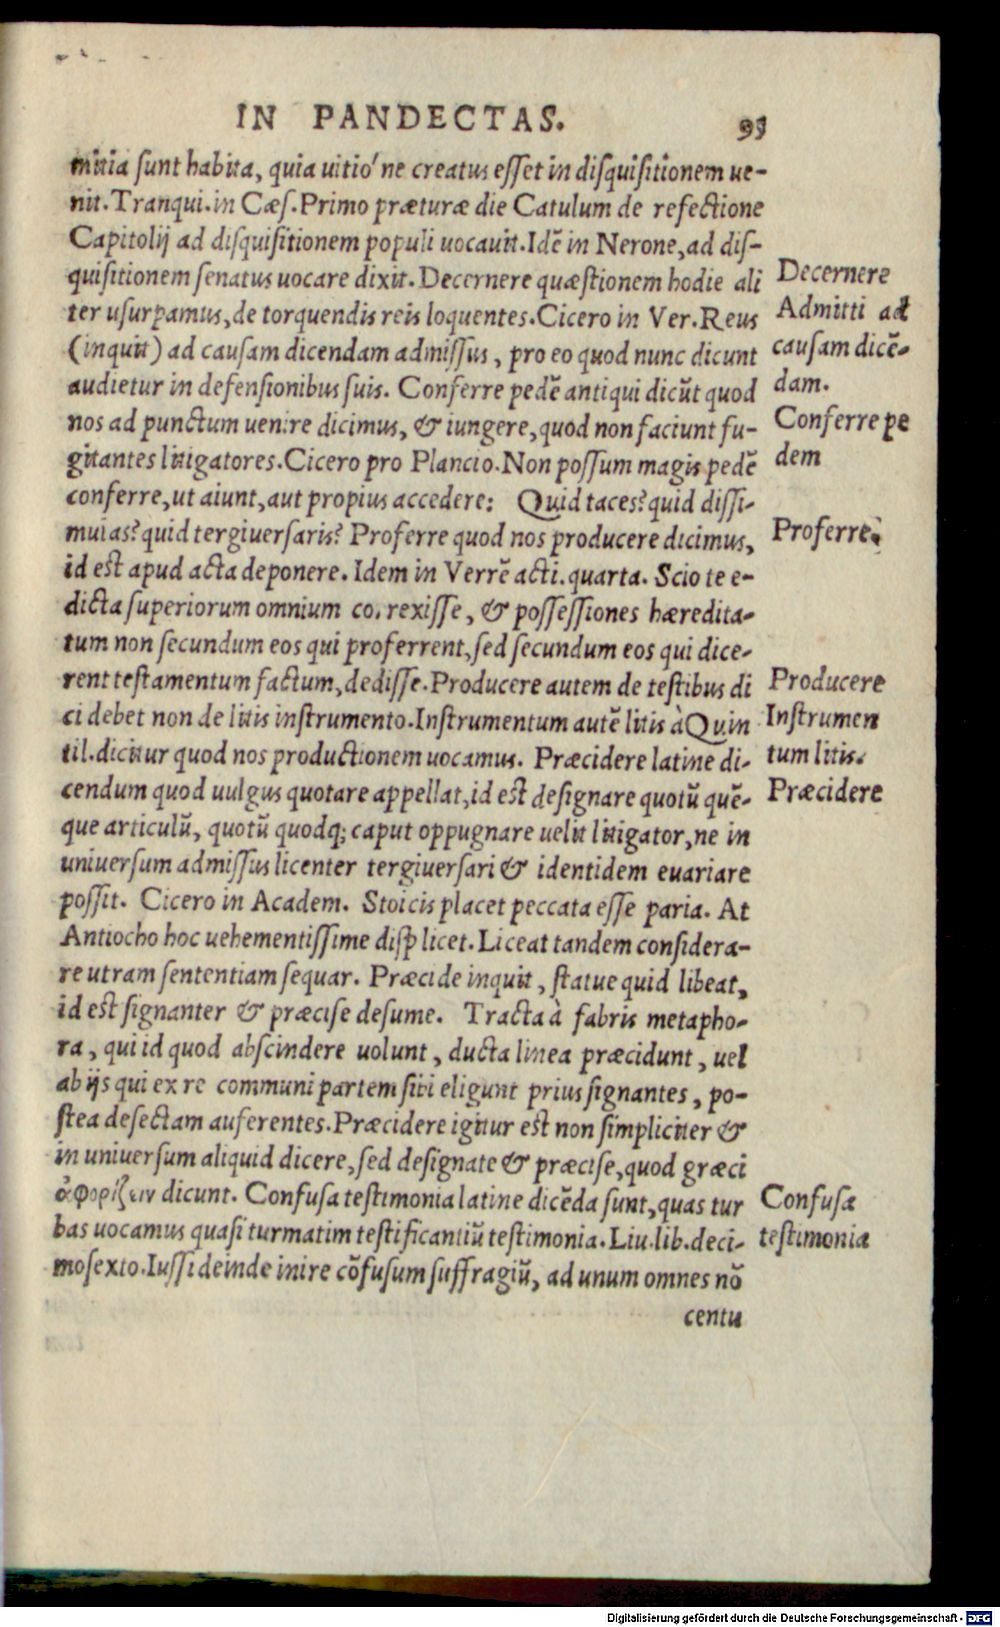 IN PANDECTAS. 93
mitia sunt habita, quia uitió ne creatus esset in disquisitionem ue-
nit. Tranqui. in Cæs. Primo præturæ die Catulum de refectione
Capitolij ad disquisitionem populi uocauit. Idē in Nerone, ad dis-
quisitionem senatus uocare dixit. Decernere quæstionem hodie ali
Decernere
ter usurpamus, de torquendis reis loquentes. Cicero in Ver. Reus
Admitti ad
(inquit) ad causam dicendam admissus, pro eo quod nunc dicunt
causam dicē-
audietur in defensionibus suis. Conferre pedē antiqui dicūt quod
dam.
nos ad punctum uenire dicimus, & iungere, quod non faciunt fu-
Conferre pe
gitantes litigatores. Cicero pro Plancio. Non possum magis pedē
dem
conferre, ut aiunt, aut propius accedere: Quid taces? quid dissi-
mulas? quid tergiuersaris? Proferre quod nos producere dicimus,
Proferre.
id est apud acta deponere. Idem in Verrē acti. quarta. Scio te e-
dicta superiorum omnium correxisse, & possessiones hæredita-
tum non secundum eos qui proferrent, sed secundum eos qui dice-
rent testamentum factum, dedisse. Producere autem de testibus di
Producere
ci debet non de litis instrumento. Instrumentum autē litis à Quin
Instrumen
til. dicitur quod nos productionem uocamus. Præcidere latine di-
tum litis.
cendum quod uulgus quotare appellat, id est designare quotū quē-
Præcidere
que articulū, quotū quodq; caput oppugnare uelit litigator, ne in
uniuersum admissus licenter tergiuersari & identidem euariare
possit. Cicero in Academ. Stoicis placet peccata esse paria. At
Antiocho hoc uehementissime displicet. Liceat tandem considera-
re utram sententiam sequar. Præcide inquit, statue quid libeat,
id est signanter & præcise desume. Tracta à fabris metapho-
ra, qui id quod abscindere uolunt, ducta linea præcidunt, uel
ab ijs qui ex re communi partem sibi eligunt prius signantes, po-
stea desectam auferentes. Præcidere igitur est non simpliciter &
in uniuersum aliquid dicere, sed designate & præcise, quod græci
ἀφορίζειν dicunt. Confusa testimonia latine dicēda sunt, quas tur
Confusa
bas uocamus quasi turmatim testificantiū testimonia. Liu. lib. deci-
testimonia
mosexto. Iussi deinde inire cōfusum suffragiū, ad unum omnes nō
centu
Digitalisierung gefördert durch die Deutsche Forschungsgemeinschaft - DFG